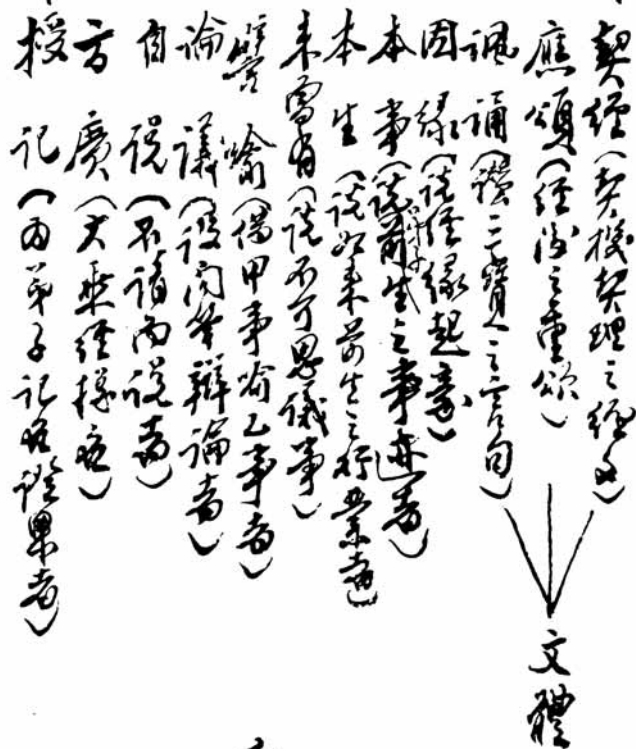 契經（契機契理之經文）
應頌（經後之重頌）
諷誦（讚三寶之言句）
因緣（說經緣起章）
本事（說弟子前生之事迹者）
本生（說如來前生之行業者）
未曾有（說不可思議事）
譬喻（借甲事喻乙事者）
論議（設問答辯論者）
自說（不請而說者）
方廣（大乘經樣者）
授記（為弟子記證果者）
文體